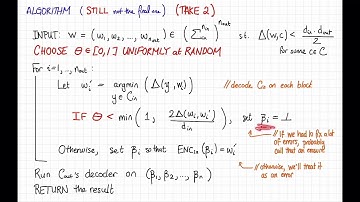 ALGORITHM (STILL not the final one) (TAKE 2)
INPUT: w = (w₁, w₂, ..., w_nout) ∈ (Σ^n_in)^n_out s.t. Δ(w,c) < d_in · d_out / 2 for some c ∈ C
CHOOSE θ ∈ [0,1] UNIFORMLY at RANDOM
For i=1, ..., n_out:
Let w_i' = argmin_{y ∈ C_in} (Δ(y, w_i)) // decode C_in on each block
IF θ < min(1, 2Δ(w_i, w_i') / d_in), set β_i = ⊥
// if we had to fix a lot of errors, probably call that an erasure
Otherwise, set β_i so that ENC_in(β_i) = w_i'
// otherwise, we'll treat it as an error
Run C_out's decoder on (β₁, β₂, ..., β_n)
RETURN the result